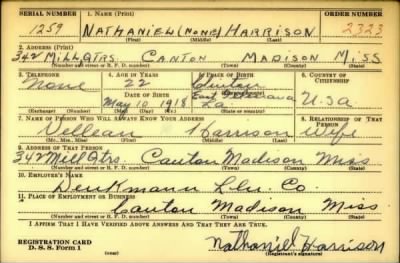 SERIAL NUMBER 1. NAME (Print) ORDER NUMBER
1259 NATHANIEL (NONE) HARRISON 2323
(First) (Middle) (Last)
2. ADDRESS (Print)
342 MILL QTRS. CANTON MADISON MISS
(Number and street or R. F. D. number) (Town) (County) (State)
3. TELEPHONE 4. AGE IN YEARS 5. PLACE OF BIRTH 6. COUNTRY OF CITIZENSHIP
None 22 Clinton
DATE OF BIRTH East Feliciana
May 10 1918 La. U.S.a
(Exchange) (Number) (Mo.) (Day) (Yr.) (State or country)
7. NAME OF PERSON WHO WILL ALWAYS KNOW YOUR ADDRESS 8. RELATIONSHIP OF THAT PERSON
Harrison Wife
(Mr., Mrs., Miss) (First) (Middle) (Last)
9. ADDRESS OF THAT PERSON
342 Mill Qtrs. Canton Madison Miss
(Number and street or R. F. D. number) (Town) (County) (State)
10. EMPLOYER'S NAME
Denkmann Lbr. Co.
11. PLACE OF EMPLOYMENT OR BUSINESS
Canton Madison Miss
(Number and street or R. F. D. number) (Town) (County) (State)
I AFFIRM THAT I HAVE VERIFIED ABOVE ANSWERS AND THAT THEY ARE TRUE.
REGISTRATION CARD
D. S. S. Form 1 Nathaniel Harrison
(Registrant's signature)